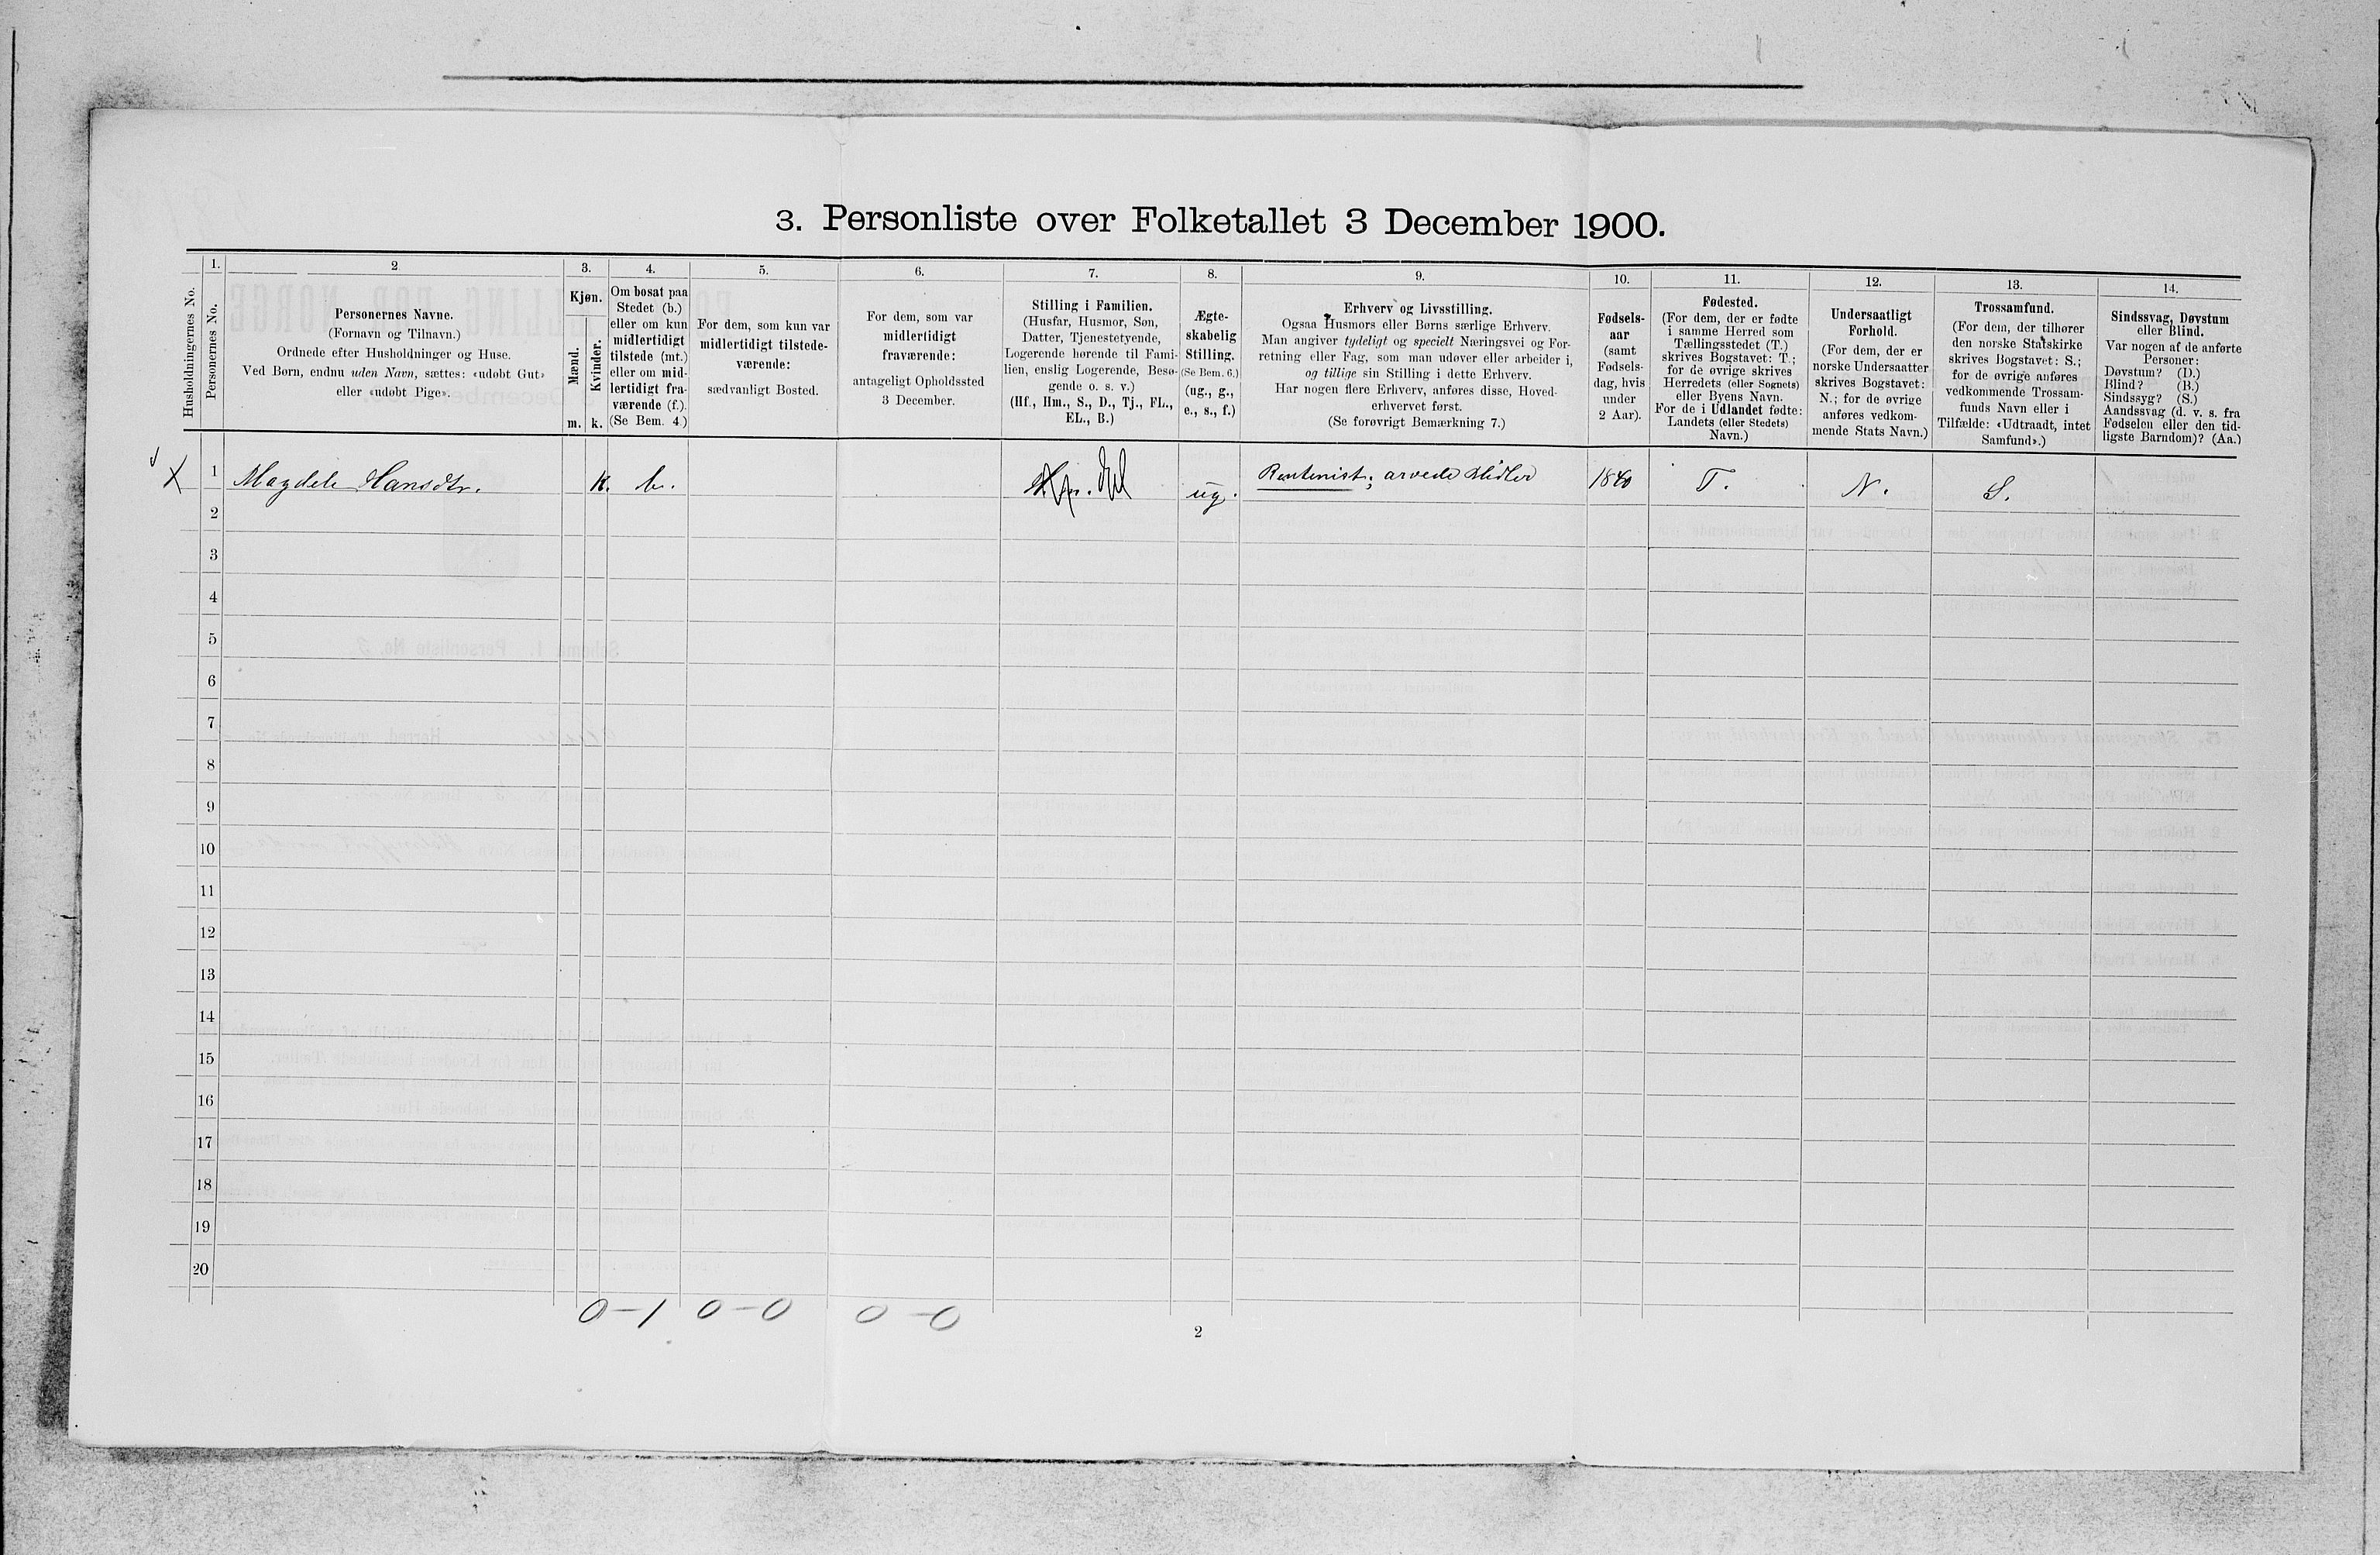 3. Personliste over Folketallet 3 December 1900.
Husholdningernes No.
1.
Personernes No.
2
Personernes Navne.
(Fornavn og Tilnavn.)
Ordnede efter Husholdninger og Huse.
Ved Børn, endnu uden Navn, sættes: «udøbt Gut»
eller «udøbt Pige».
3.
Kjøn.
Mænd.
Kvinder.
m. k.
4.
Om bosat paa
Stedet (b.)
eller om kun
midlertidigt
tilstede (mt.)
eller om mid-
lertidigt fra-
værende (f.).
(Se Bem. 4.)
5.
For dem, som kun var
midlertidigt tilstede-
værende:
sædvanligt Bosted.
6.
For dem, som var
midlertidigt
fraværende:
antageligt Opholdssted
3 December.
7.
Stilling i Familien.
(Husfar, Husmor, Søn,
Datter, Tjenestetyende,
Logerende hørende til Fami-
lien, enslig Logerende, Besø-
gende o. s. v.)
(Hf., Hm., S., D., Tj., FL.,
EL., B.)
8.
Ægte-
skabelig
Stilling.
(Se Bem. 6.)
(ug., g.,
e., s., f.)
9.
Erhverv og Livsstilling.
Ogsaa Husmors eller Børns særlige Erhverv.
Man angiver tydeligt og specielt Næringsvei og For-
retning eller Fag, som man udøver eller arbeider i,
og tillige sin Stilling i dette Erhverv.
Har nogen flere Erhverv, anføres disse, Hoved-
erhvervet først.
(Se forøvrigt Bemærkning 7.)
10.
Fødsels-
aar
(samt
Fødsels-
dag, hvis
under
2 Aar).
11.
Fødested.
(For dem, der er fødte
i samme Herred som
Tællingsstedet (T.)
skrives Bogstavet: T.;
for de øvrige skrives
Herredets (eller Sognets)
eller Byens Navn.
For de i Udlandet fødte:
Landets (eller Stedets)
Navn.)
12.
Undersaatligt
Forhold.
(For dem, der er
norske Undersaatter
skrives Bogstavet:
N.; for de øvrige
anføres vedkom-
mende Stats Navn.)
13.
Trossamfund.
(For dem, der tilhører
den norske Statskirke
skrives Bogstavet: S.;
for de øvrige anføres
vedkommende Trossam-
funds Navn eller i
Tilfælde: «Udtraadt, intet
Samfund».)
14.
Sindssvag, Døvstum
eller Blind.
Var nogen af de anførte
Personer:
Døvstum? (D.)
Blind? (B.)
Sindssyg? (S.)
Aandssvag (d. v. s. fra
Fødselen eller den tid-
ligste Barndom)? (Aa.)
X 1 Magdele Hansdtr. K. b. ug. Rentenist; arvede Midler 1840 T. N. S.
2
3
4
5
6
7
8
9
10
11
12
13
14
15
16
17
18
19
20
0-1 0-0 0-0
2